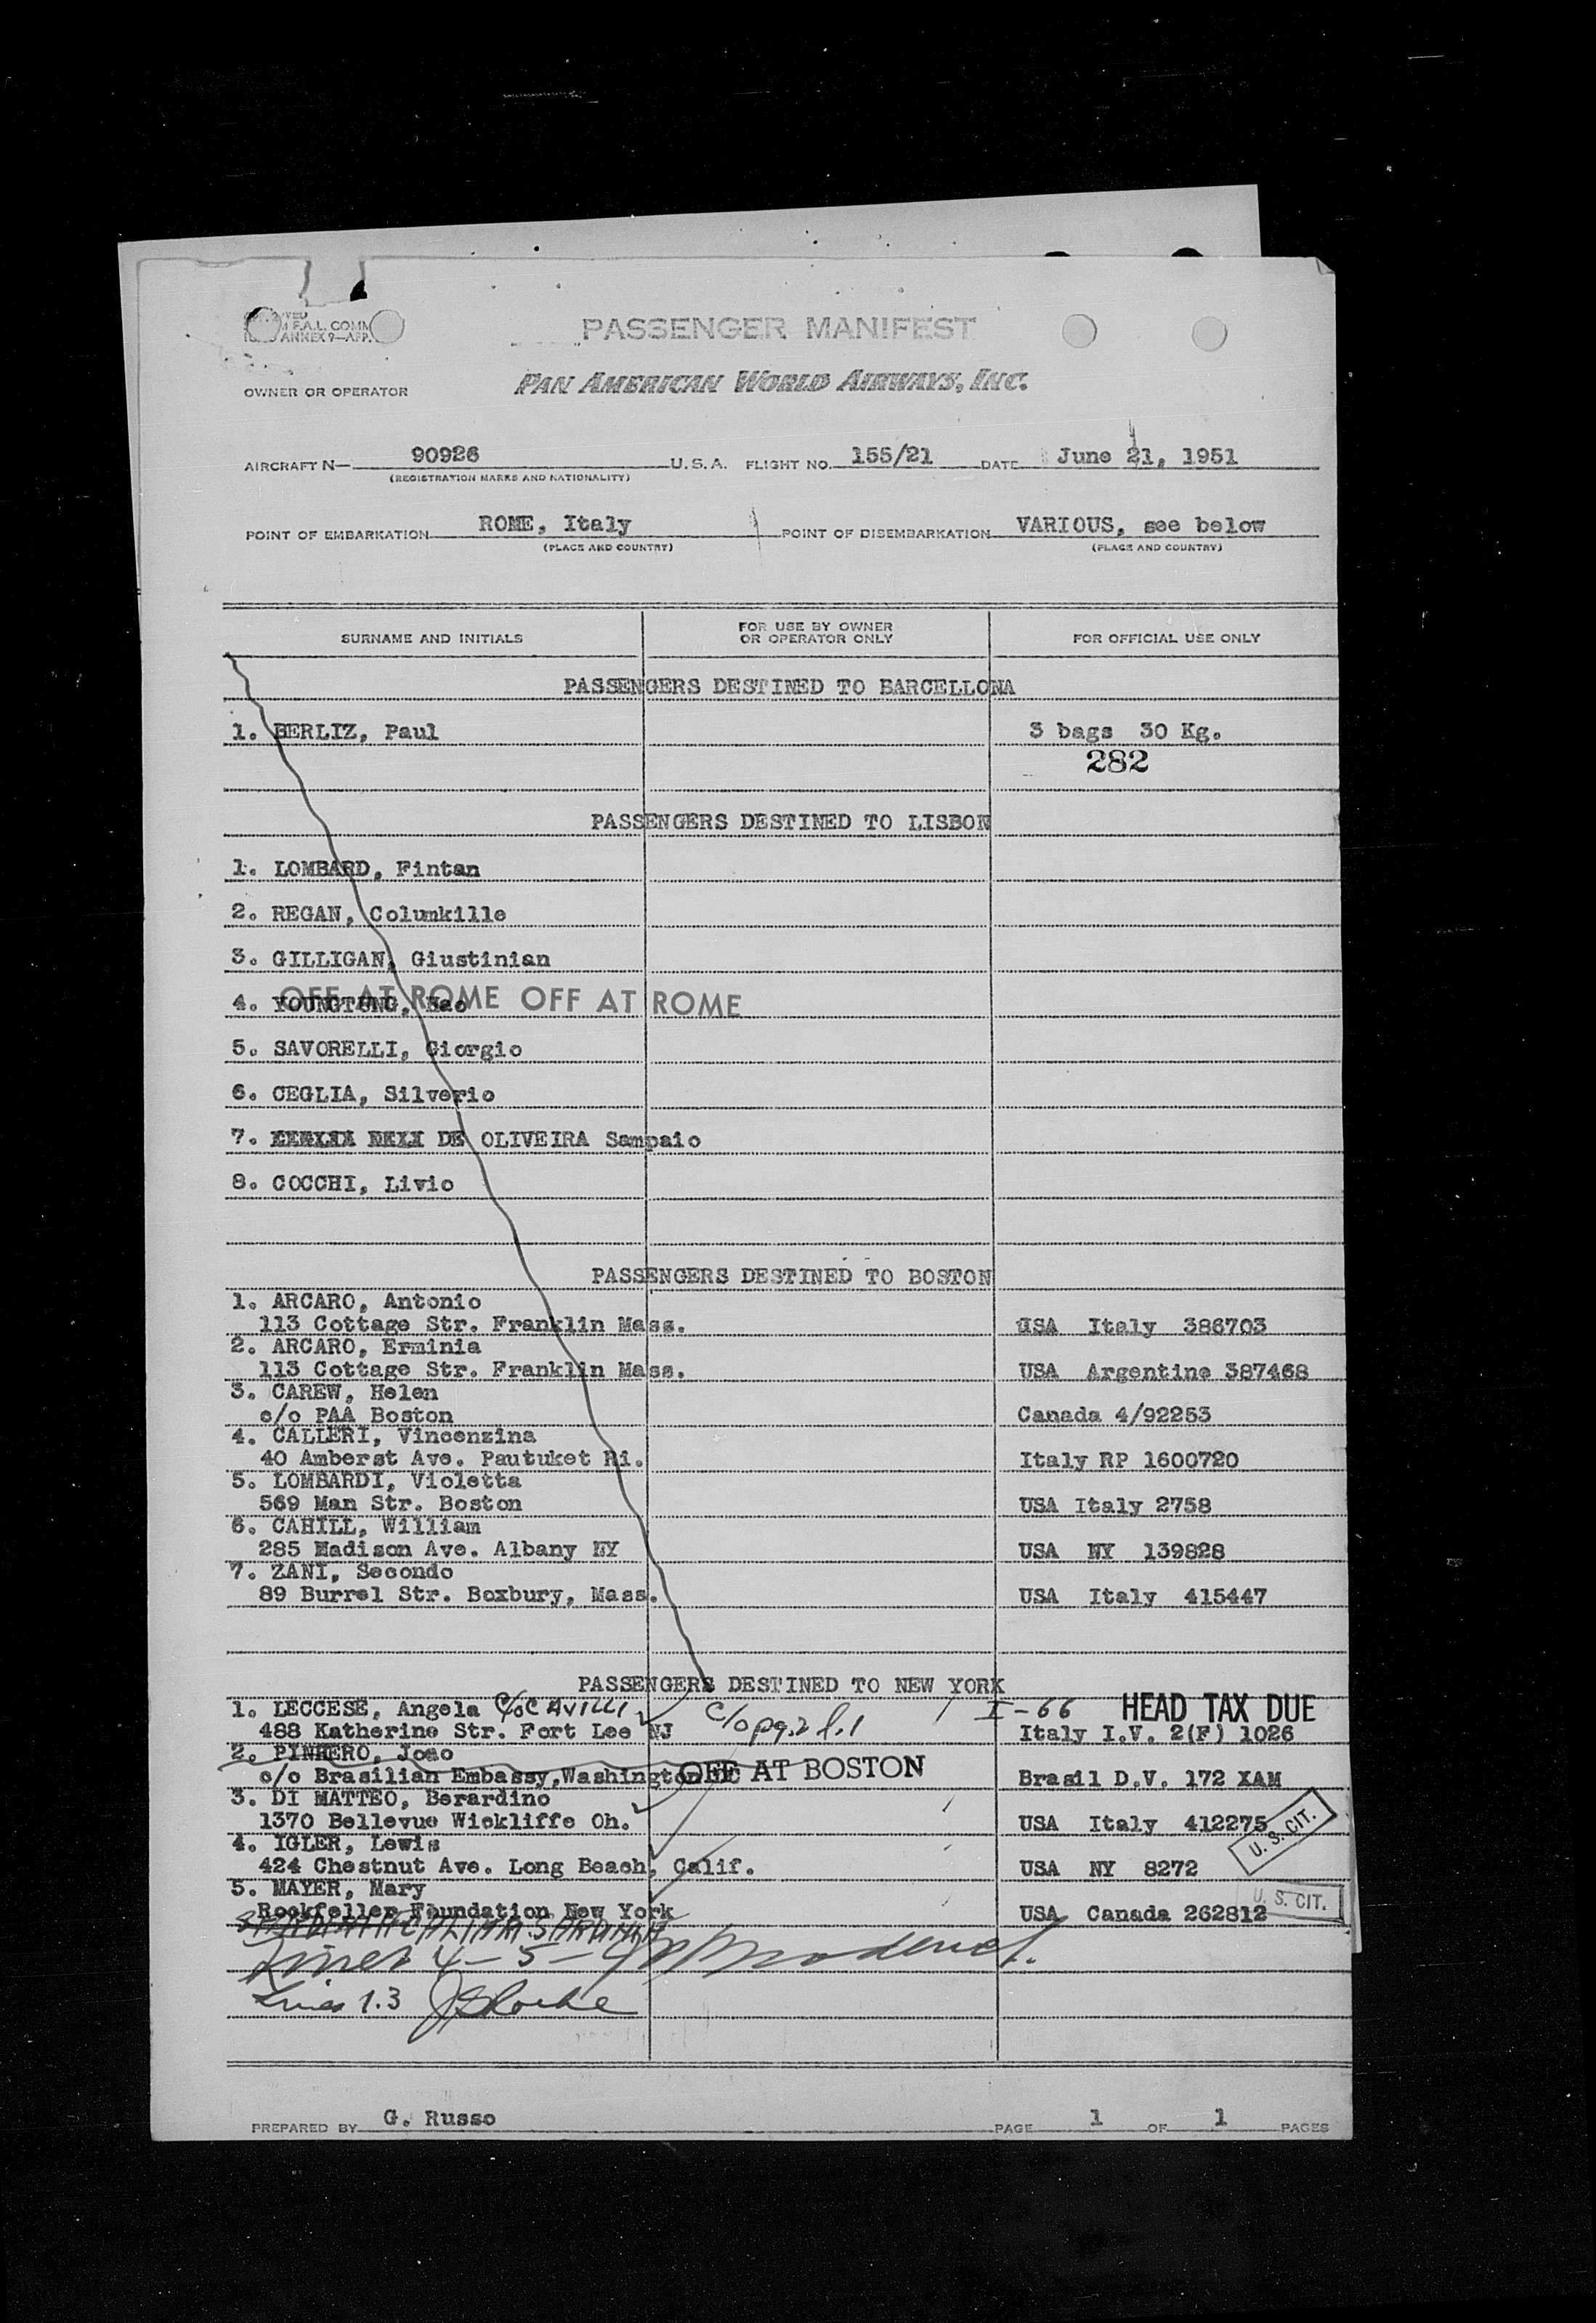 F.A.L. COMM
ANNEX 9—APP.
PASSENGER MANIFEST
OWNER OR OPERATOR PAN AMERICAN WORLD AIRWAYS, INC.
AIRCRAFT N— 90926 U.S.A. FLIGHT NO. 155/21 DATE June 21, 1951
(REGISTRATION MARKS AND NATIONALITY)
POINT OF EMBARKATION ROME, Italy POINT OF DISEMBARKATION VARIOUS, see below
(PLACE AND COUNTRY) (PLACE AND COUNTRY)
SURNAME AND INITIALS FOR USE BY OWNER OR OPERATOR ONLY FOR OFFICIAL USE ONLY
PASSENGERS DESTINED TO BARCELLONA
1. BERLIZ, Paul 3 bags 30 Kg.
282
PASSENGERS DESTINED TO LISBON
1. LOMBARD, Fintan
2. REGAN, Columkille
3. GILLIGAN, Giustinian
4. YOUNGTUNG, OFF AT ROME OFF AT ROME
5. SAVORELLI, Giorgio
6. CEGLIA, Silverio
7. DE OLIVEIRA Sampaio
8. COCCHI, Livio
PASSENGERS DESTINED TO BOSTON
1. ARCARO, Antonio
113 Cottage Str. Franklin Mass. USA Italy 386703
2. ARCARO, Erminia
113 Cottage Str. Franklin Mass. USA Argentine 387468
3. CAREW, Helen
c/o PAA Boston Canada 4/92253
4. CALLERI, Vincenzina
40 Amberst Ave. Pautuket Ri. Italy RP 1600720
5. LOMBARDI, Violetta
569 Man Str. Boston USA Italy 2758
6. CAHILL, William
285 Madison Ave. Albany NY USA NY 139828
7. ZANI, Secondo
89 Burrel Str. Boxbury, Mass. USA Italy 415447
PASSENGERS DESTINED TO NEW YORK
1. LECCESE, Angela c/o CAVILLI c/o pg.2 l.1 I-66 HEAD TAX DUE
488 Katherine Str. Fort Lee NJ Italy I.V. 2(F) 1026
2. PINHERO, Joao
c/o Brasilian Embassy, Washington DC OFF AT BOSTON Brasil D.V. 172 XAM
3. DI MATTEO, Berardino
1370 Bellevue Wickliffe Oh. USA Italy 412275 U. S. CIT.
4. IGLER, Lewis
424 Chestnut Ave. Long Beach, Calif. USA NY 8272
5. MAYER, Mary
Rockfeller Foundation New York USA Canada 262812 U. S. CIT.
Lines 4-5-
Lines 1.3
PREPARED BY G. Russo PAGE 1 OF 1 PAGES